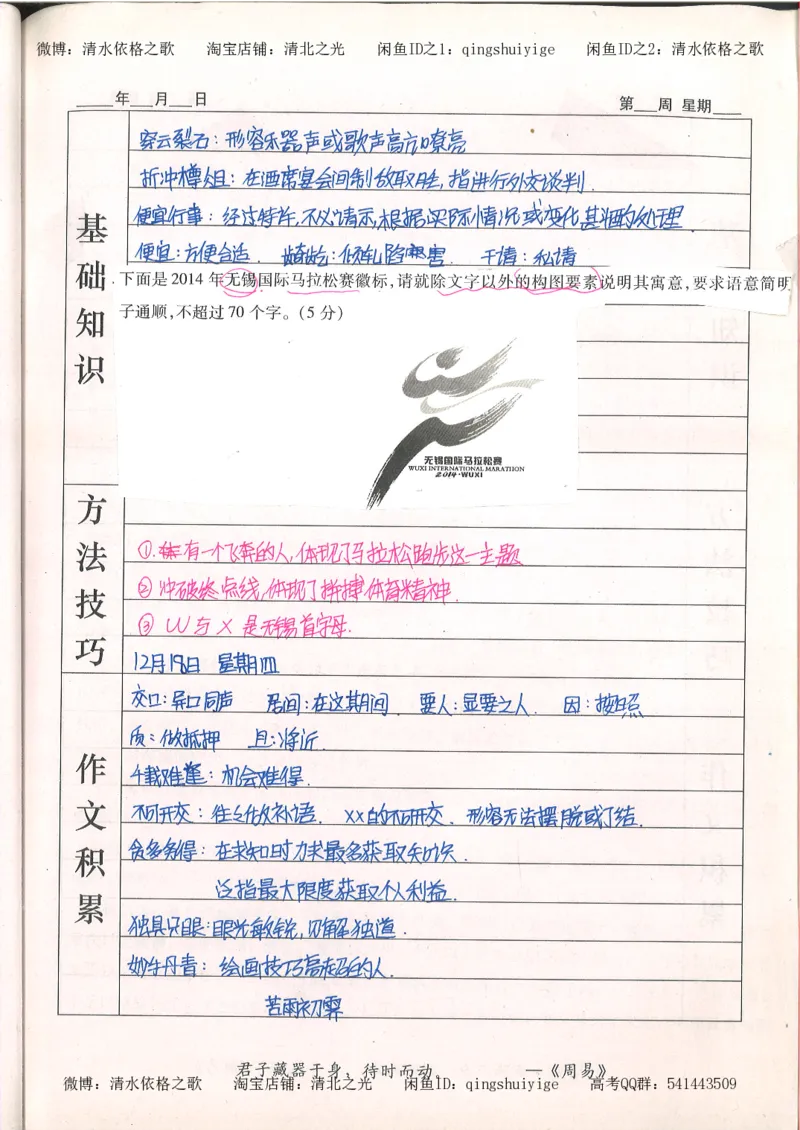 微博：清水依格之歌 淘宝店铺：清北之光 闲鱼ID之1：qingshuiyige 闲鱼ID之2：清水依格之歌
年 月 日 第 周 星期
基础知识
穿云裂石：形容乐器声或歌声高亢嘹亮
折冲樽俎：在酒席宴会间制敌取胜，指进行外交谈判.
便宜行事：经过特许，不必请示，根据实际情况或变化基酒的处理.
便宜：方便合适. 龉龁：倾轧陷害. 干请：私请
下面是2014年无锡国际马拉松赛徽标，请就除文字以外的构图要素说明其寓意，要求语意简明
子通顺，不超过70个字。（5分）
无锡国际马拉松赛
WUXI INTERNATIONAL MARATHON
2014·WUXI
方法技巧
①.有一个飞奔的人，体现了马拉松跑步这一主题
②冲破终点线，体现了拼搏体育精神.
③ W与X是无锡首字母.
12月19日 星期四
作文积累
交口：异口同声 居间：在这期间. 要人：显要之人. 因：按照
质：做抵押 且：将近.
千载难逢：机会难得.
不可开交：往往做补语. XX的不可开交. 形容无法摆脱或了结.
贪多务得：在求知时力求最多获取知识.
泛指最大限度获取个人利益.
独具只眼：眼光敏锐，见解独道.
妙手丹青：绘画技巧高超的人.
苦雨初霁
君子藏器于身，待时而动。 —《周易》
微博：清水依格之歌 淘宝店铺：清北之光 闲鱼ID：qingshuiyige 高考QQ群：541443509